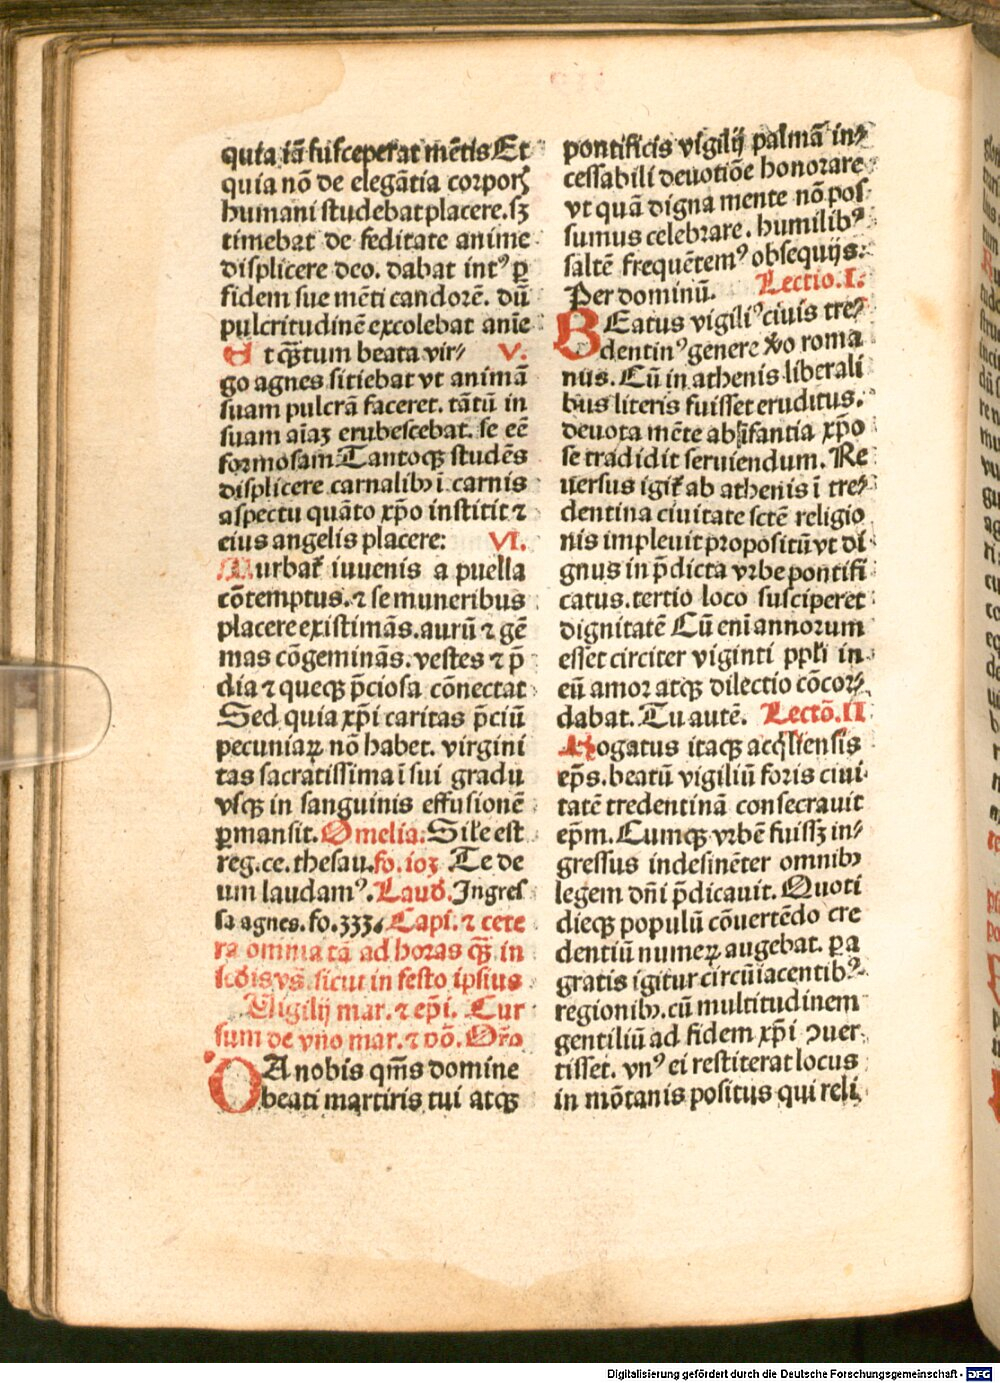 quia iā ſuſceperat mētis Et
quia nō de elegātia corporꝫ
humani ſtudebat placere. ſꝫ
timebat de feditate anime
diſplicere deo. dabat intꝰ ꝑ
fidem ſue mēti candorē. dū
pulcritudinē excolebat anīe
Et qꝫtum beata vir⸗ V.
go agnes ſitiebat vt animā
ſuam pulcrā faceret. tātū in
ſuam aīaꝫ erubeſcebat. ſe eē
formoſam Tantoqꝫ ſtudēs
diſplicere carnalibꝫ ī carnis
aſpectu quāto xp̄o inſtitit ⁊
eius angelis placere: VI.
Turbat̄ iuuenis a puella
cōtemptus. ⁊ ſe muneribus
placere exiſtimās. aurū ⁊ gē
mas cōgeminās. veſtes ⁊ p̄
dia ⁊ queqꝫ p̄cioſa cōnectat
Sed quia xp̄i caritas p̄ciū
pecuniaꝝ nō habet. virgini
tas ſacratiſſima ī ſui gradu
vſqꝫ in ſanguinis effuſionē
ꝑmanſit. Omelia. Sil̄e eſt
reg. ce. theſau. fo. 103 Te de
um laudamꝰ. Laud̄. Ingreſ
ſa agnes. fo. 333. Capi. ⁊ cete
ra omnia tā ad horas qꝫ in
lc̄dis vs̄. ſicut in feſto ipſius
Vigilij mar. ⁊ ep̄i. Cur
ſum de vno mar. ⁊ pō. Or̄o
DA nobis qm̄s domine
beati martiris tui atqꝫ
pontificis vigilij palmā in⸗
ceſſabili deuotiōe honorare
vt quā digna mente nō poſ
ſumus celebrare. humilibꝰ
ſaltē frequētemꝰ obſequijs:
Per dominū. Lectio. I.
BEatus vigiliꝰ ciuis tre⸗
dentinꝰ genere x̄o roma
nus. Cū in athenis liberali
bus literis fuiſſet eruditus.
deuota mēte ab īfantia xp̄o
ſe tradidit ſeruiendum. Re
uerſus igit̄ ab athenis ī tre⸗
dentina ciuitate ſctē religio
nis impleuit propoſitū vt di
gnus in p̄dicta vrbe pontifi
catus. tertio loco ſuſciperet
dignitatē Cū enī annorum
eſſet circiter viginti ppl̄i in
eū amor atqꝫ dilectio cōcor⸗
dabat. Tu autē. Lectō. II
Rogatus itaqꝫ acq̄lienſis
ep̄s. beatū vigiliū foris ciui
tatē tredentinā conſecrauit
ep̄m. Cumqꝫ vrbē fuiſſꝫ in⸗
greſſus indeſinēter omnibꝫ
legem dn̄i p̄dicauit. Quoti
dieqꝫ populū cōuertēdo cre
dentiū numeꝝ augebat. ꝑa
gratis igitur circūiacentibꝰ
regionibꝫ. cū multitudinem
gentiliū ad fidem xp̄i ꝯuer
tiſſet. vnꝰ ei reſtiterat locus
in mōtanis poſitus qui reli
Digitalisierung gefördert durch die Deutsche Forschungsgemeinschaft - DFG